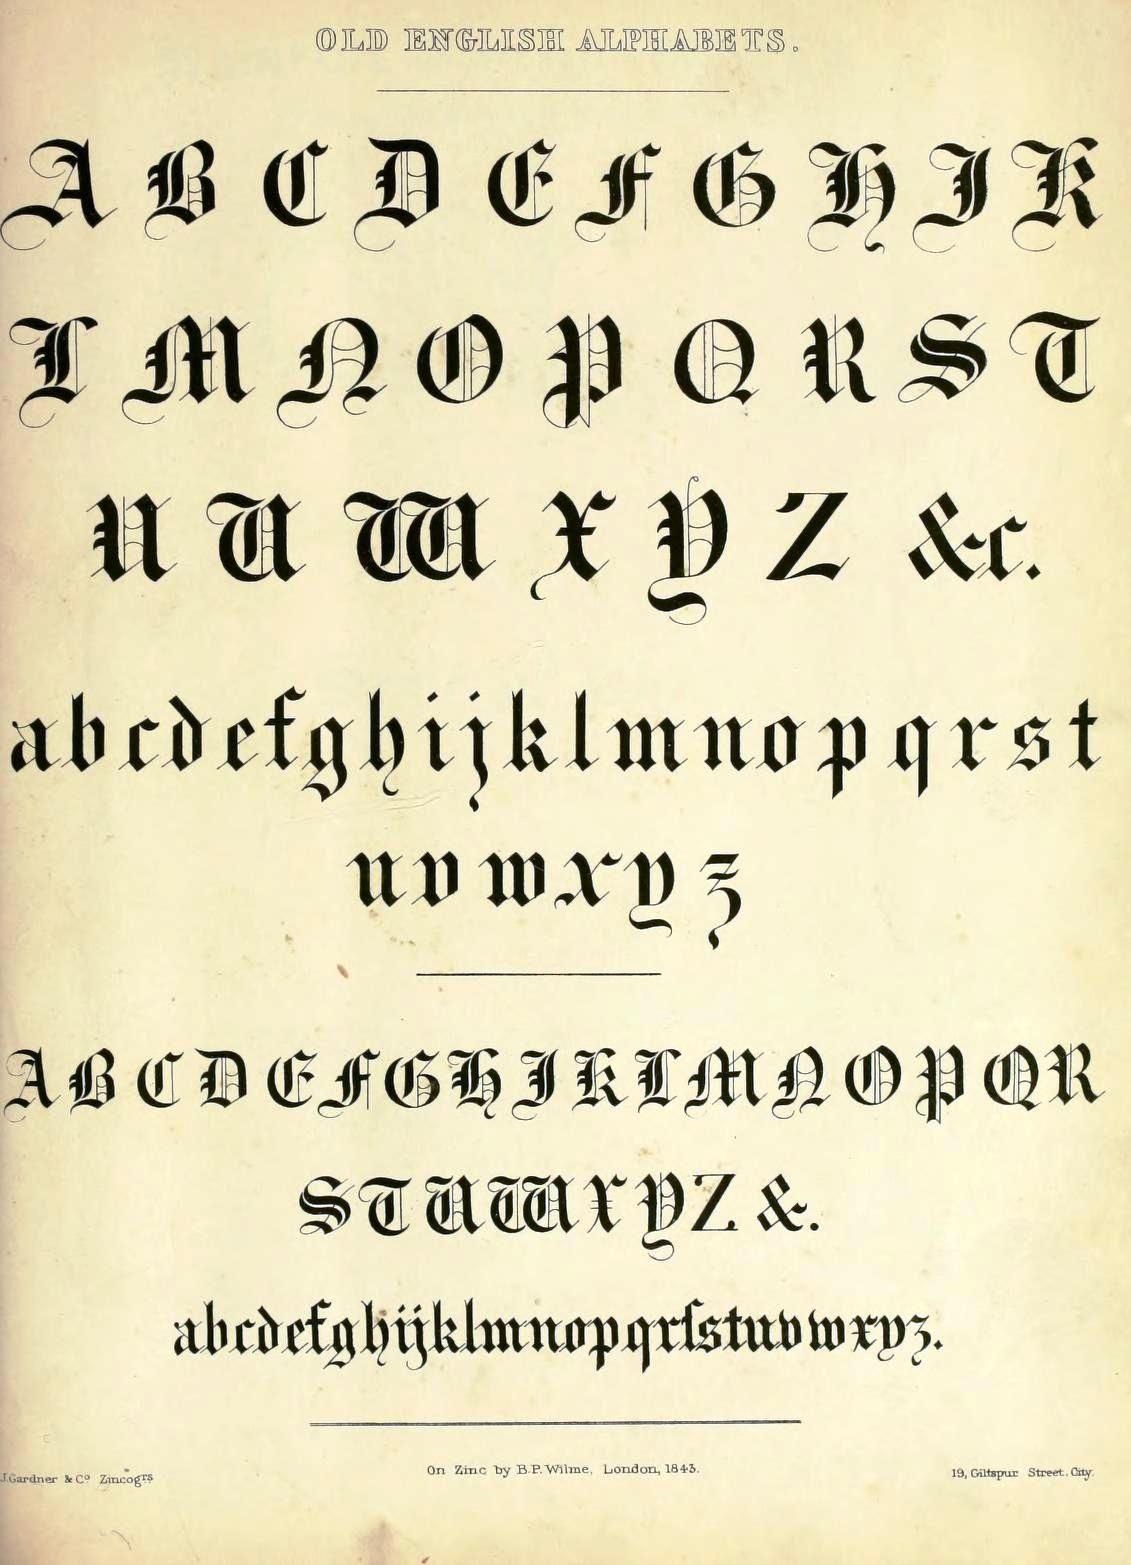 OLD ENGLISH ALPHABETS.
A B C D E F G H I K
L M N O P Q R S T
U U W X Y Z &c.
a b c d e f g h i j k l m n o p q r s t
u v w x y z
A B C D E F G H I K L M N O P Q R
S T U W X Y Z &.
a b c d e f g h i j k l m n o p q r ſ s t u v w x y z.
J. Gardner & Co Zincogrs
On Zinc by B.P. Wilme, London, 1843.
19, Giltspur Street, City.